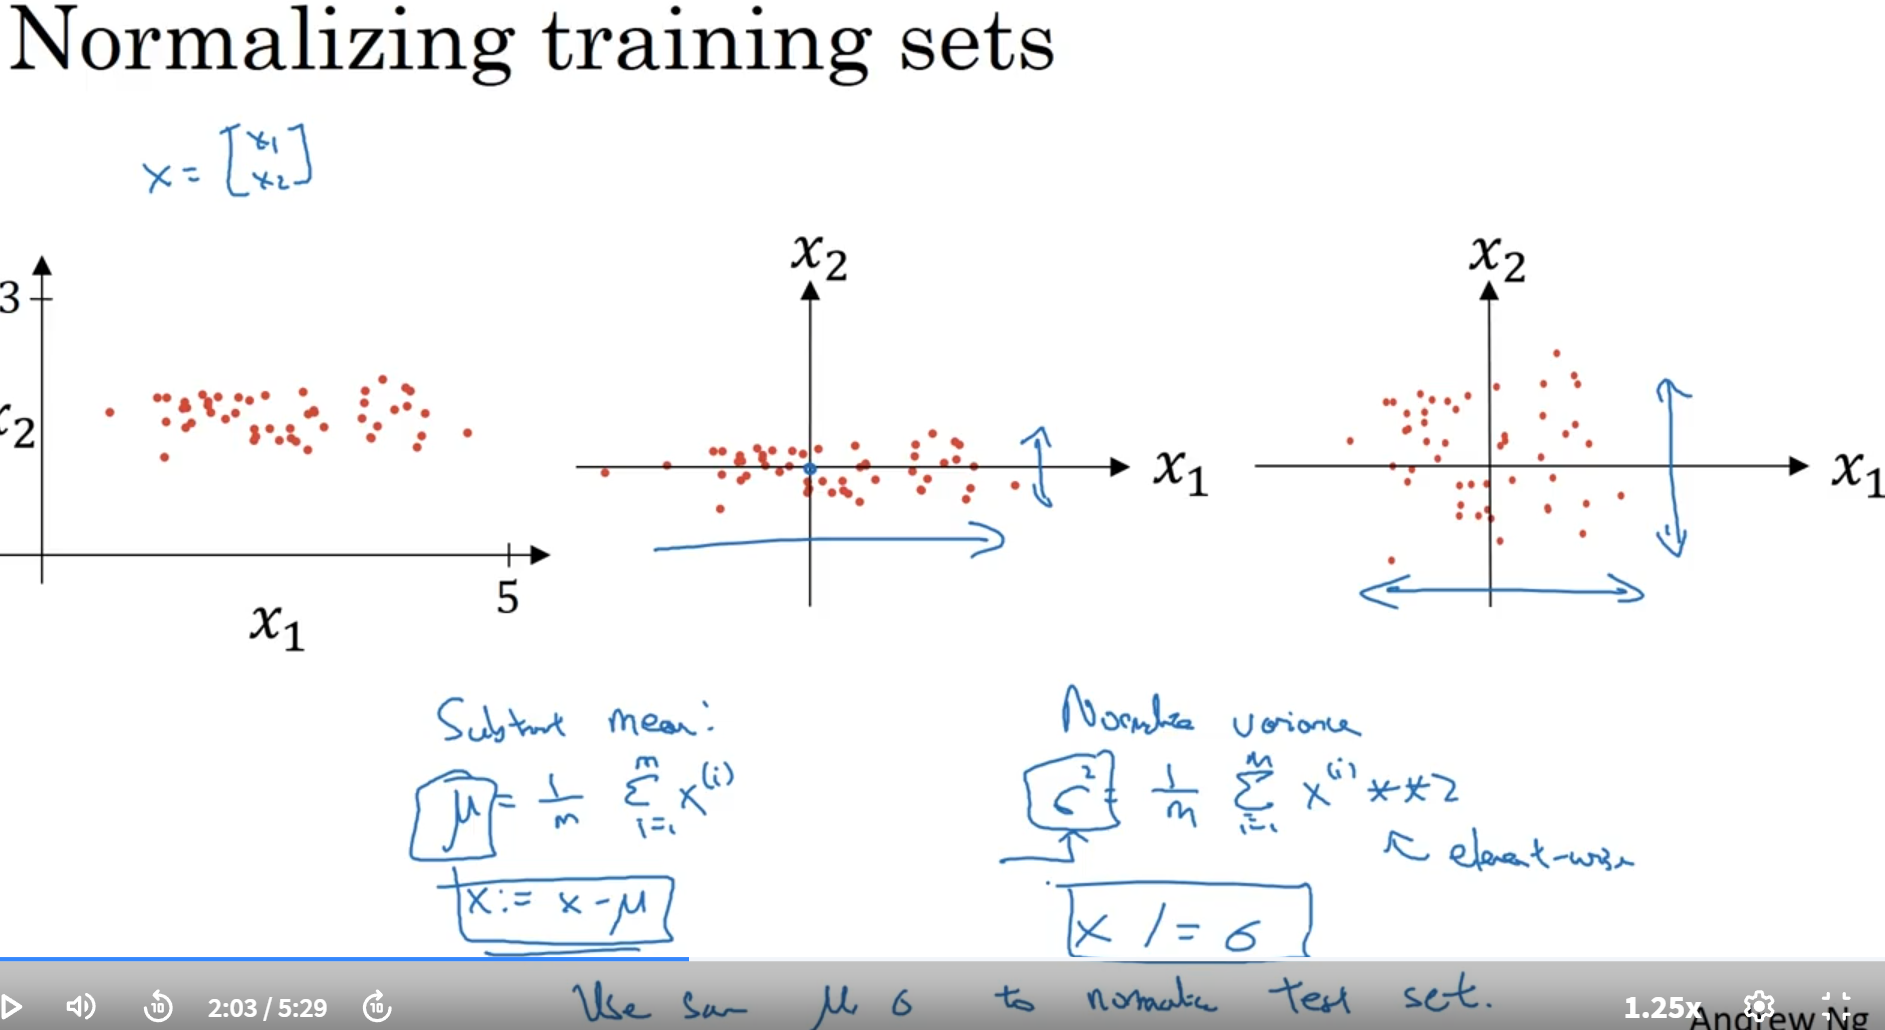 Normalizing training sets
x = [x1 x2]
x2
x2
3
x2
x1
x1
5
x1
Subtract mean:
Normalize variance
μ = 1/m Σ i=1 m x(i)
σ2 = 1/m Σ i=1 m x(i) **2
element-wise
x := x - μ
x /= σ
Use same μ, σ to normalize test set.
10 2:03 / 5:29 10
1.25x
Andrew Ng